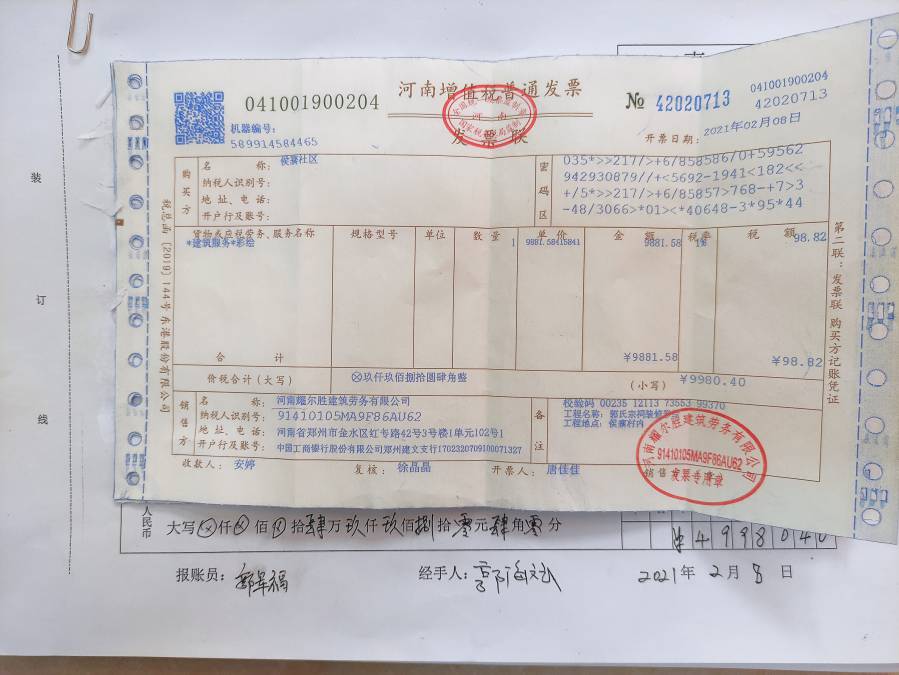 041001900204
河南增值税普通发票
发票联
№ 42020713
041001900204
42020713
机器编号:
589914584465
开票日期: 2021年02月08日
购买方
名 称: 侯寨社区
纳税人识别号:
地 址、电 话:
开户行及账号:
密码区
035*>>217/>+6/858586/0+59562
942930879//+<5692-1941<182<<
+/5*>>217/>+6/85857>768-+7>3
-48/3066>*01><*40648-3*95*44
货物或应税劳务、服务名称 规格型号 单位 数 量 单 价 金 额 税率 税 额
*建筑服务*彩绘 1 9881.58415841 9881.58 1% 98.82
合 计 ¥9881.58 ¥98.82
价税合计(大写) ⊗玖仟玖佰捌拾圆肆角整 (小写) ¥9980.40
销售方
名 称: 河南耀尔胜建筑劳务有限公司
纳税人识别号: 91410105MA9F86AU62
地 址、电 话: 河南省郑州市金水区红专路42号3号楼1单元102号1
开户行及账号: 中国工商银行股份有限公司郑州建文支行1702320709100071327
备注
校验码 00235 12113 73553 99370
工程名称: 郭氏宗祠装修
工程地点: 侯寨村内
河南耀尔胜建筑劳务有限公司
91410105MA9F86AU62
销售 发票专用章
收款人: 安婷 复核: 徐晶晶 开票人: 唐佳佳
税总函〔2019〕144号东港股份有限公司
第二联:发票联 购买方记账凭证
装
订
线
人民币
大写 仟 佰 拾肆万玖仟玖佰捌拾零元肆角零分
4998040
报账员:
经手人:
2021年2月8日